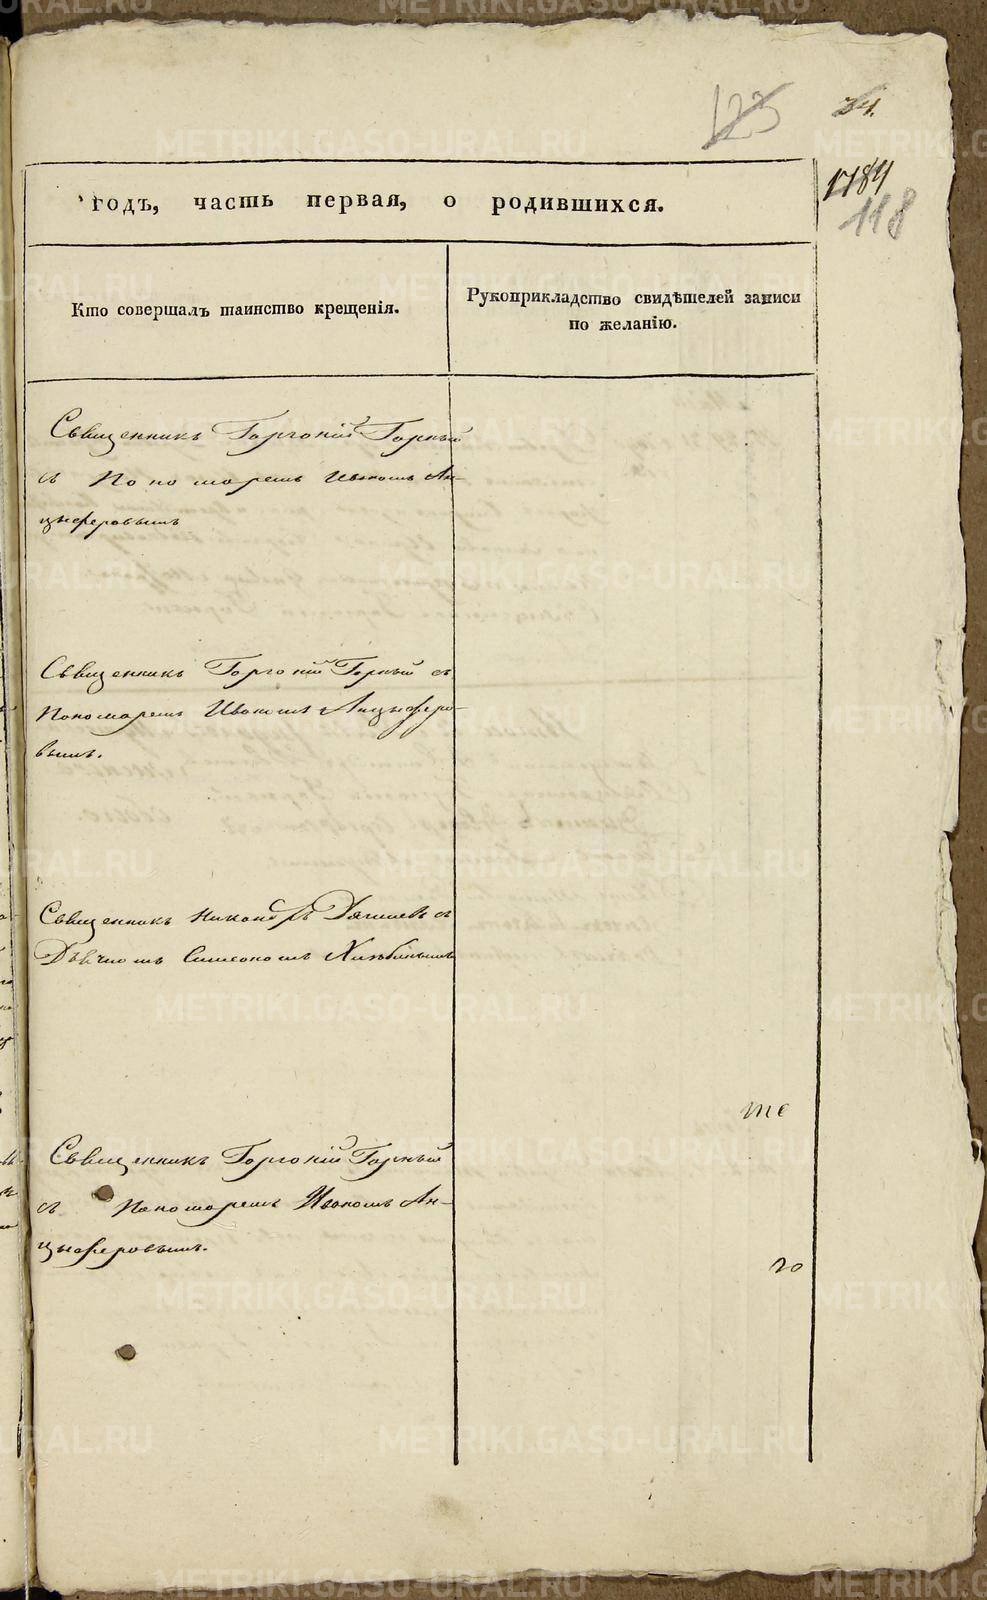 123
24.
1184
118
годъ, часть первая, о родившихся.
Кто совершалъ таинство крещенія.
Рукоприкладство свидѣтелей записи
по желанію.
Священникъ Горгоній Горный
съ Пономаремъ Иваномъ Ан-
цыферовымъ
Священникъ Горгоній Горный съ
Пономаремъ Иваномъ Анцыферо-
вымъ.
Священникъ Никандръ съ
Дьячкомъ Симеономъ
те
Священникъ Горгоній Горный
съ Пономаремъ Иваномъ Ан-
цыферовымъ.
го
METRIKI.GASO-URAL.RU